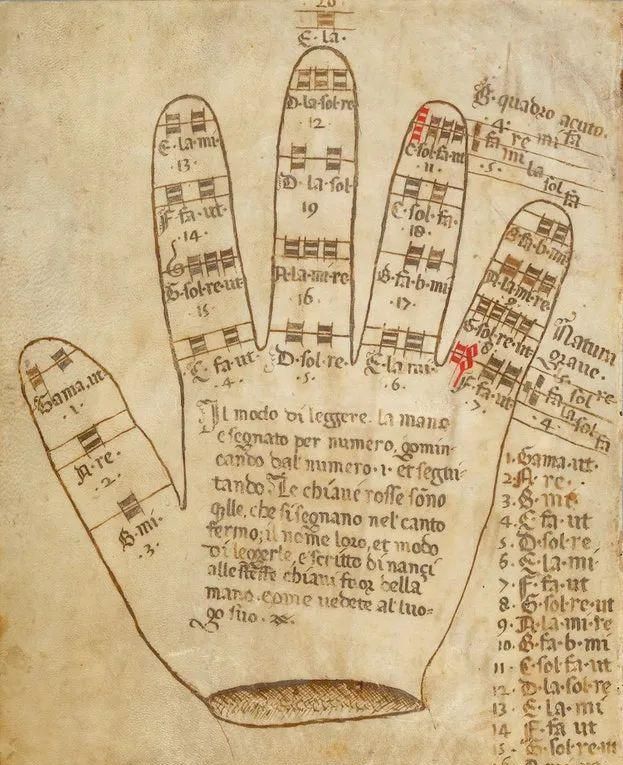 20
E·la·
D·la·sol·re
12
E·la·mi·
13·
C·sol·fa·ut
11
♮·quadro acuto·
·4· re mi fa
fa mi la sol fa
·5·
D·la·sol·
19
F·fa·ut·
·14·
C·sol·fa·
·18·
B·fa·b·mi·
G·sol·re·ut
15
A·la·mi·re
16·
B·fa·b·mi
·17·
A·la·mi·re
9
G·sol·re·ut
8
C·fa·ut·
·4·
D·sol·re·
·5·
E·la·mi·
·6·
F·fa·ut
·7·
Natura
grave·
·5· sol re
fa la sol fa
·4·
Gama·ut·
·1·
A·re·
·2·
B·mi·
·3·
Il modo di leggere· la mano
e segnato per numero, gomin-
cando dal numero·1· et segui-
tando· Le chiaui rosse sono
qlle, che si segnano nel canto
fermo; il nome loro, et modo
di leggerle, e scritto di nanci
alle stesse chiaui fuor della
mano·come uedete al luo-
go suo·
1·Gama·ut·
2·A·re·
3·B·mi·
4·C·fa·ut
5·D·sol·re
6·E·la·mi
7·F·fa·ut
8·G·sol·re·ut
9·A·la·mi·re
10·B·fa·b·mi
11·C·sol·fa·ut
12·D·la·sol·re
13·E·la·mi
14 F·fa ut
15·G·sol·re·ut